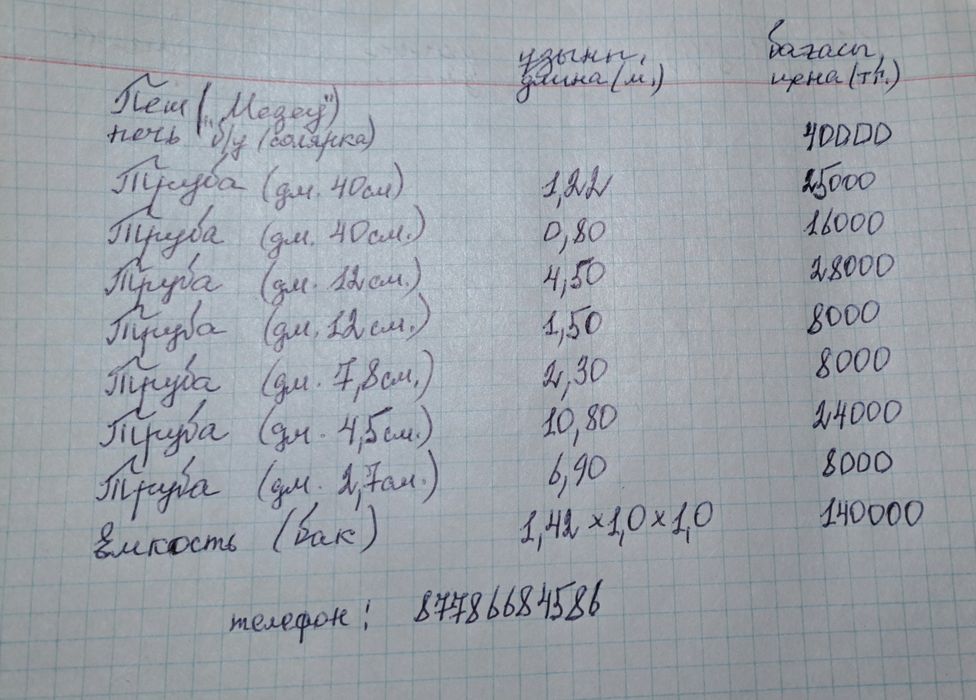 ұзынп. бағасы,
длина (м.) цена (тг.)
Пеш ("Медеу")
печь б/у (солярка) 40000
Труба (дм. 40см) 1,22 25000
Труба (дм. 40см.) 0,80 16000
Труба (дм. 12см.) 4,50 28000
Труба (дм. 12см.) 1,50 8000
Труба (дм. 7,8см.) 2,30 8000
Труба (дм. 4,5см.) 10,80 24000
Труба (дм. 2,7см.) 6,90 8000
Емкость (бак) 1,42 × 1,0 × 1,0 140000
телефон: 87786684586